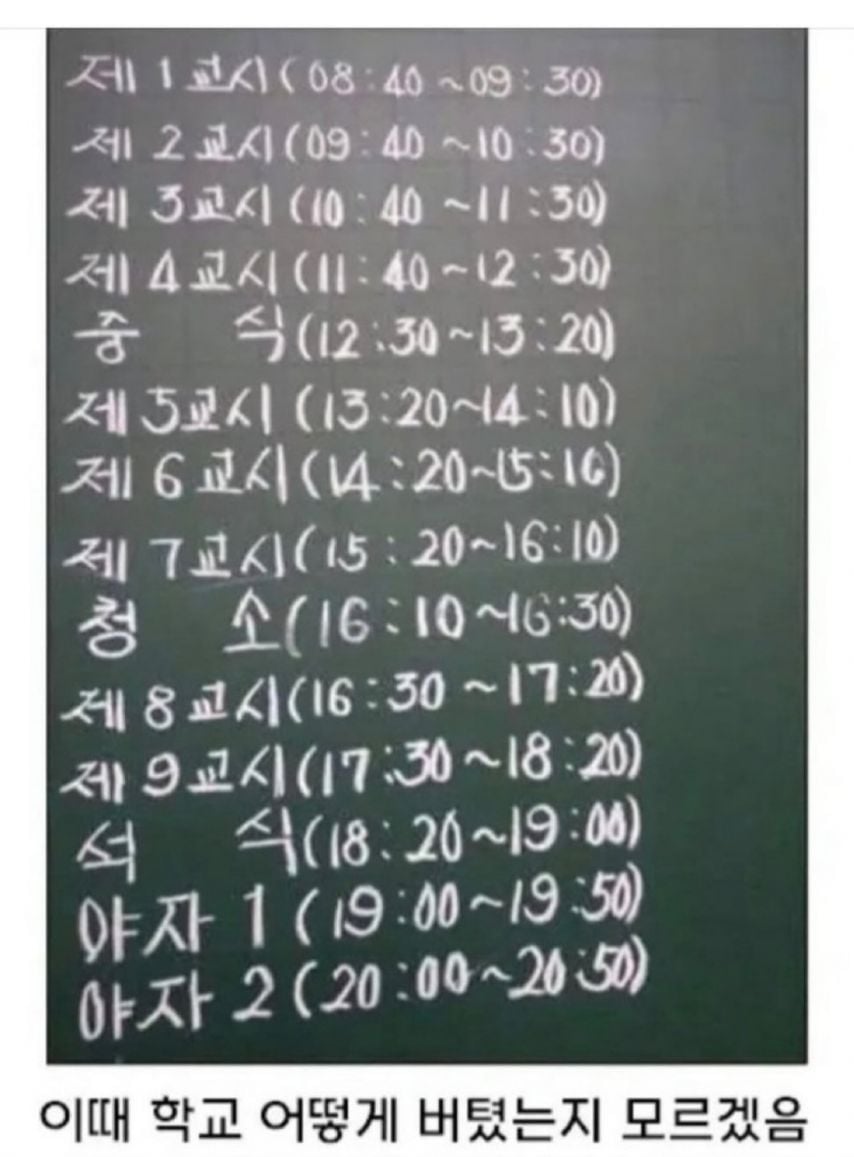 제 1 교시 (08:40 ~09:30)
제 2 교시 (09:40 ~10:30)
제 3 교시 (10:40 ~11:30)
제 4 교시 (11:40 ~12:30)
중 식 (12:30~13:20)
제 5 교시 (13:20~14:10)
제 6 교시 (14:20~15:10)
제 7 교시 (15:20~16:10)
청 소 (16:10~16:30)
제 8 교시 (16:30 ~17:20)
제 9 교시 (17:30~18:20)
석 식 (18:20~19:00)
야자 1 (19:00~19:50)
야자 2 (20:00~20:50)
이때 학교 어떻게 버텼는지 모르겠음